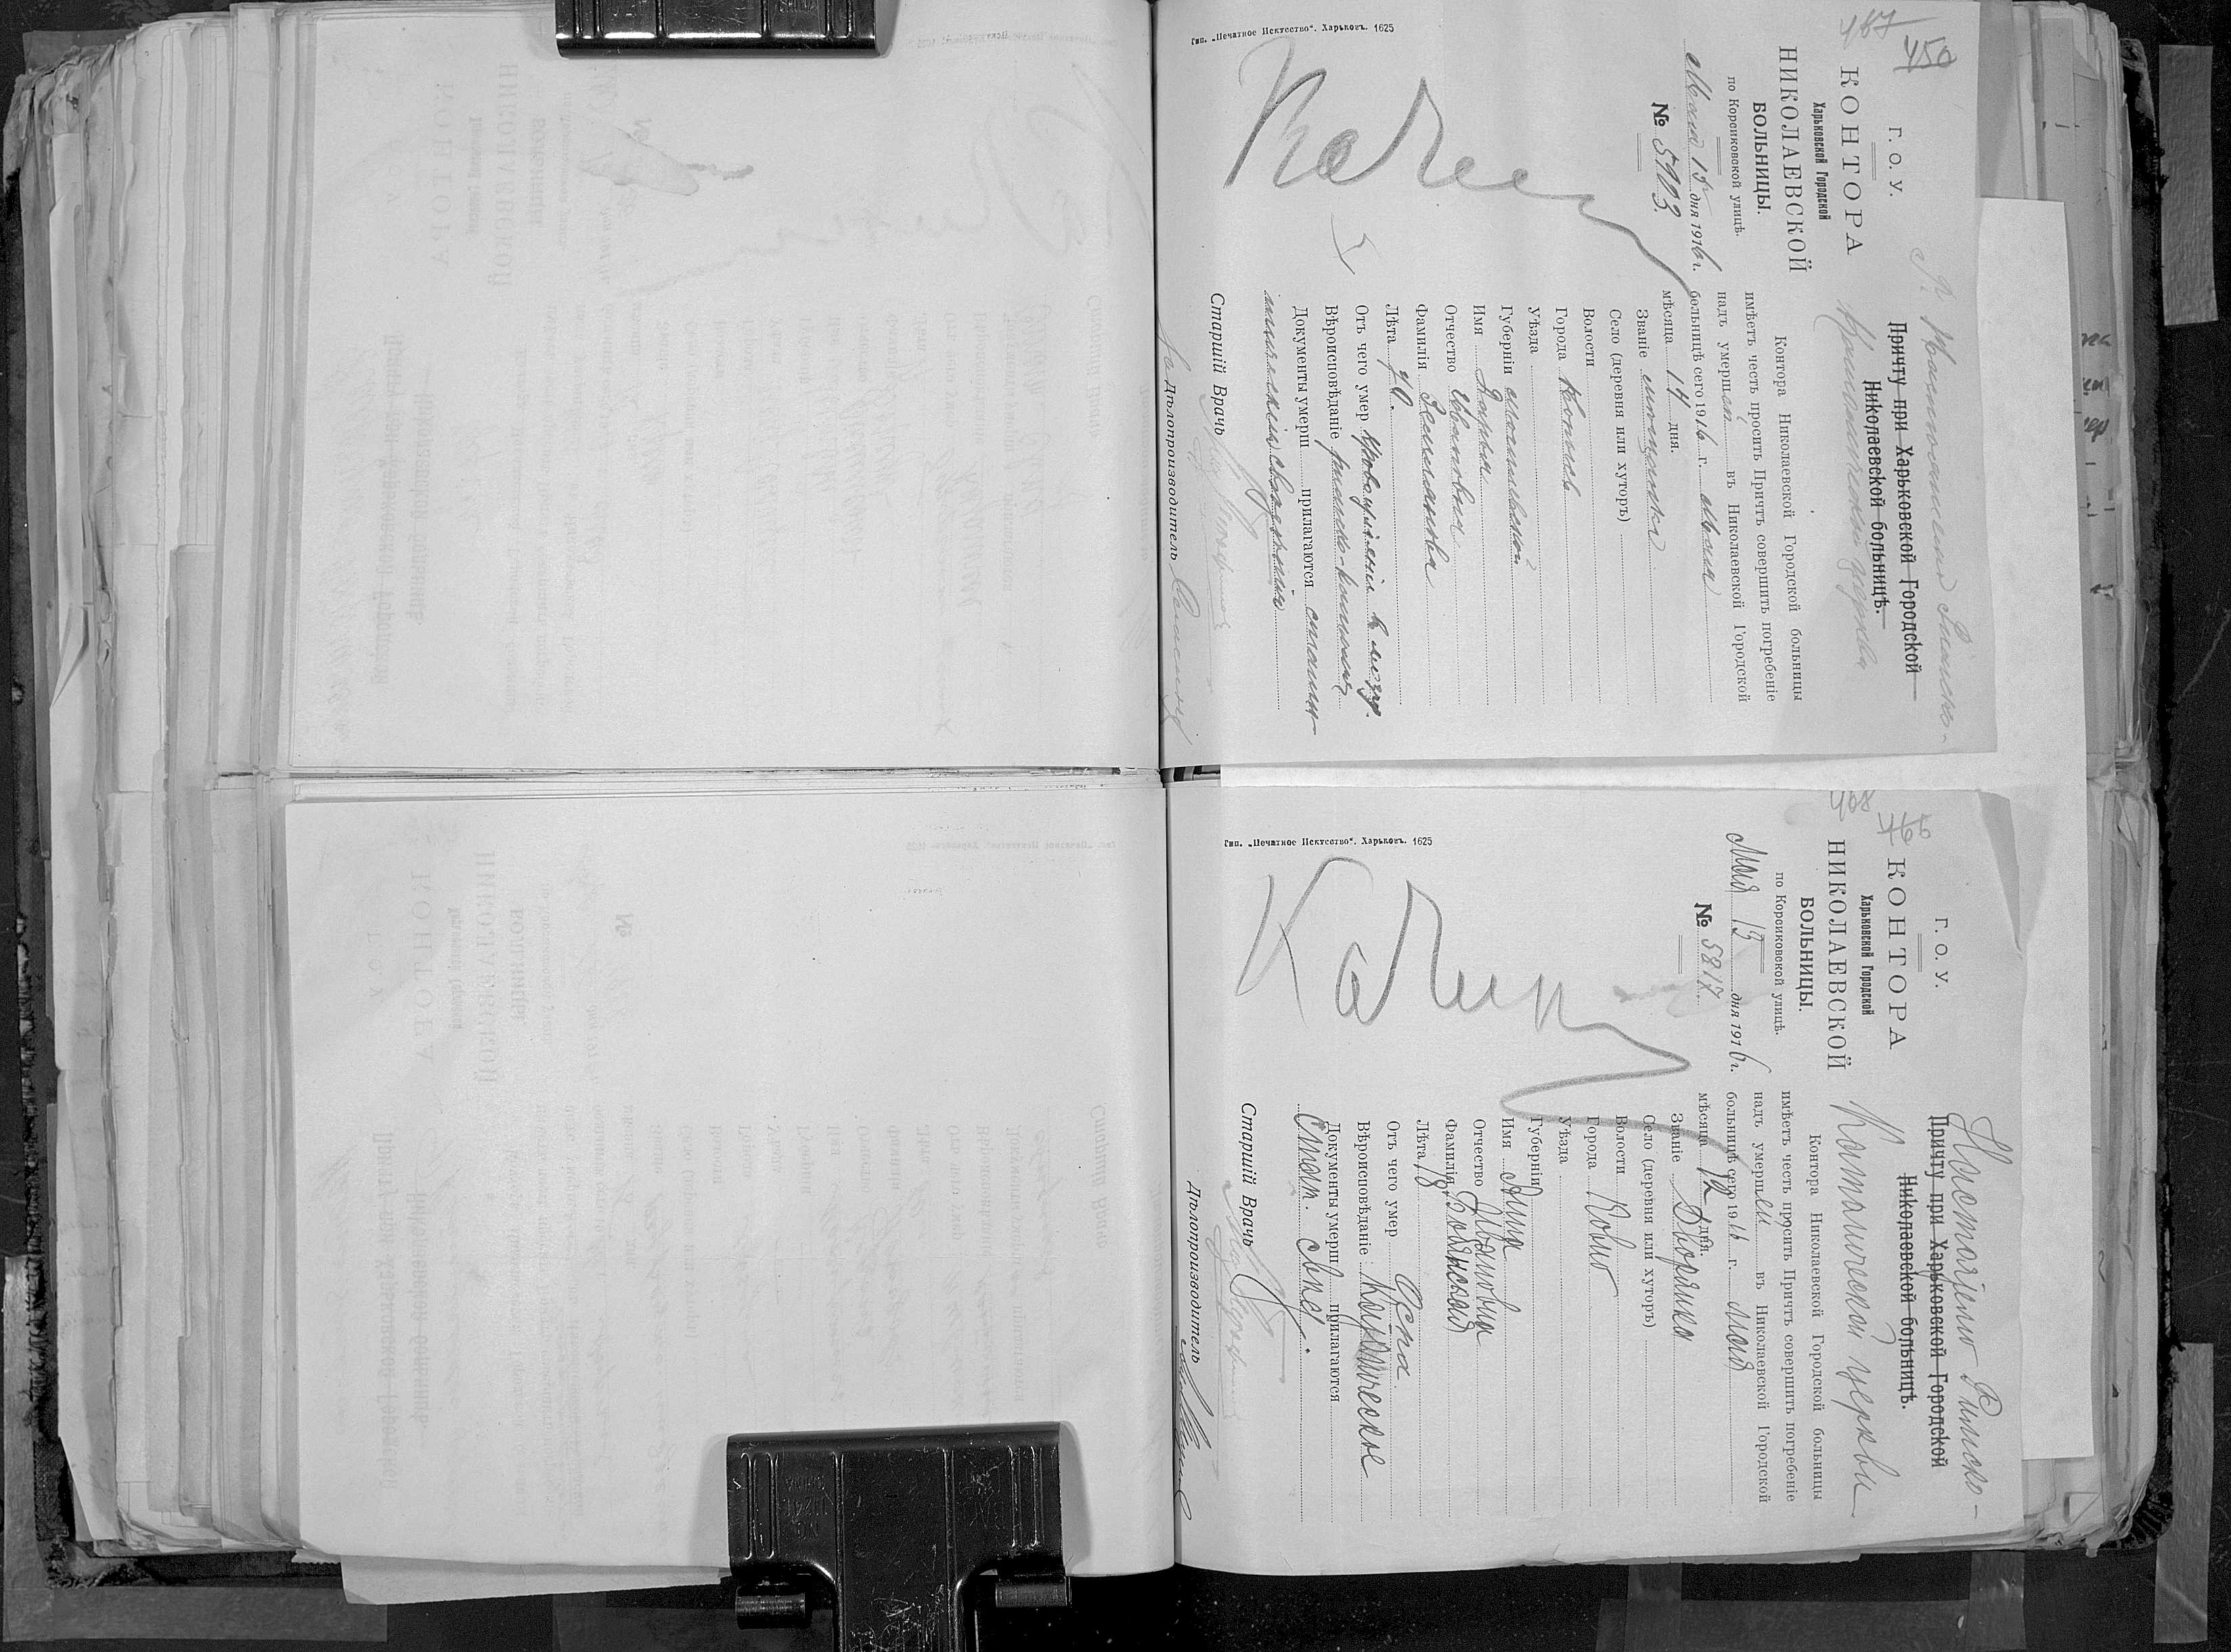 167
450
Г. О. У.
КОНТОРА
Харьковской Городской
НИКОЛАЕВСКОЙ
БОЛЬНИЦЫ.
по Корсиковской улицѣ.
Мая 15 дня 1916 г.
№ 5903.
Римско-
Католической церкви
Причту при Харьковской Городской
Николаевской больницѣ.
Контора Николаевской Городской больницы
имѣетъ честь просить Причтъ совершить погребеніе
надъ умершей въ Николаевской Городской
больницѣ сего 1916 г. Мая
мѣсяца 14 дня.
Званіе мѣщанка
Село (деревня или хуторъ)
Волости
Города
Уѣзда
Губерніи Могилевской
Имя Марья
Отчество Ивановна
Фамилія
Лѣта 70.
Отъ чего умер Кровоизліянія въ мозгъ.
Вѣроисповѣданіе римско-католич
Документы умерш прилагаются
свѣдѣнія
Старшій Врачъ
За Дѣлопроизводитель
Тип. „Печатное Искусство“. Харьковъ. 1625
468
Г. О. У.
КОНТОРА
Харьковской Городской
НИКОЛАЕВСКОЙ
БОЛЬНИЦЫ.
по Корсиковской улицѣ.
Мая 13 дня 1916 г.
№ 5817.
Настоятелю Римско-
Католической церкви
Причту при Харьковской Городской
Николаевской больницѣ.
Контора Николаевской Городской больницы
имѣетъ честь просить Причтъ совершить погребеніе
надъ умершей въ Николаевской Городской
больницѣ сего 1916 г. Мая
мѣсяца 12 дня.
Званіе Дворянка
Село (деревня или хуторъ)
Волости
Города Ковно
Уѣзда
Губерніи
Имя Анна
Отчество Ивановна
Фамилія
Лѣта 18
Отъ чего умер Оспа.
Вѣроисповѣданіе Католическое
Документы умерш прилагаются
Стат. свѣд.
Старшій Врачъ
Дѣлопроизводитель
Тип. „Печатное Искусство“. Харьковъ. 1625